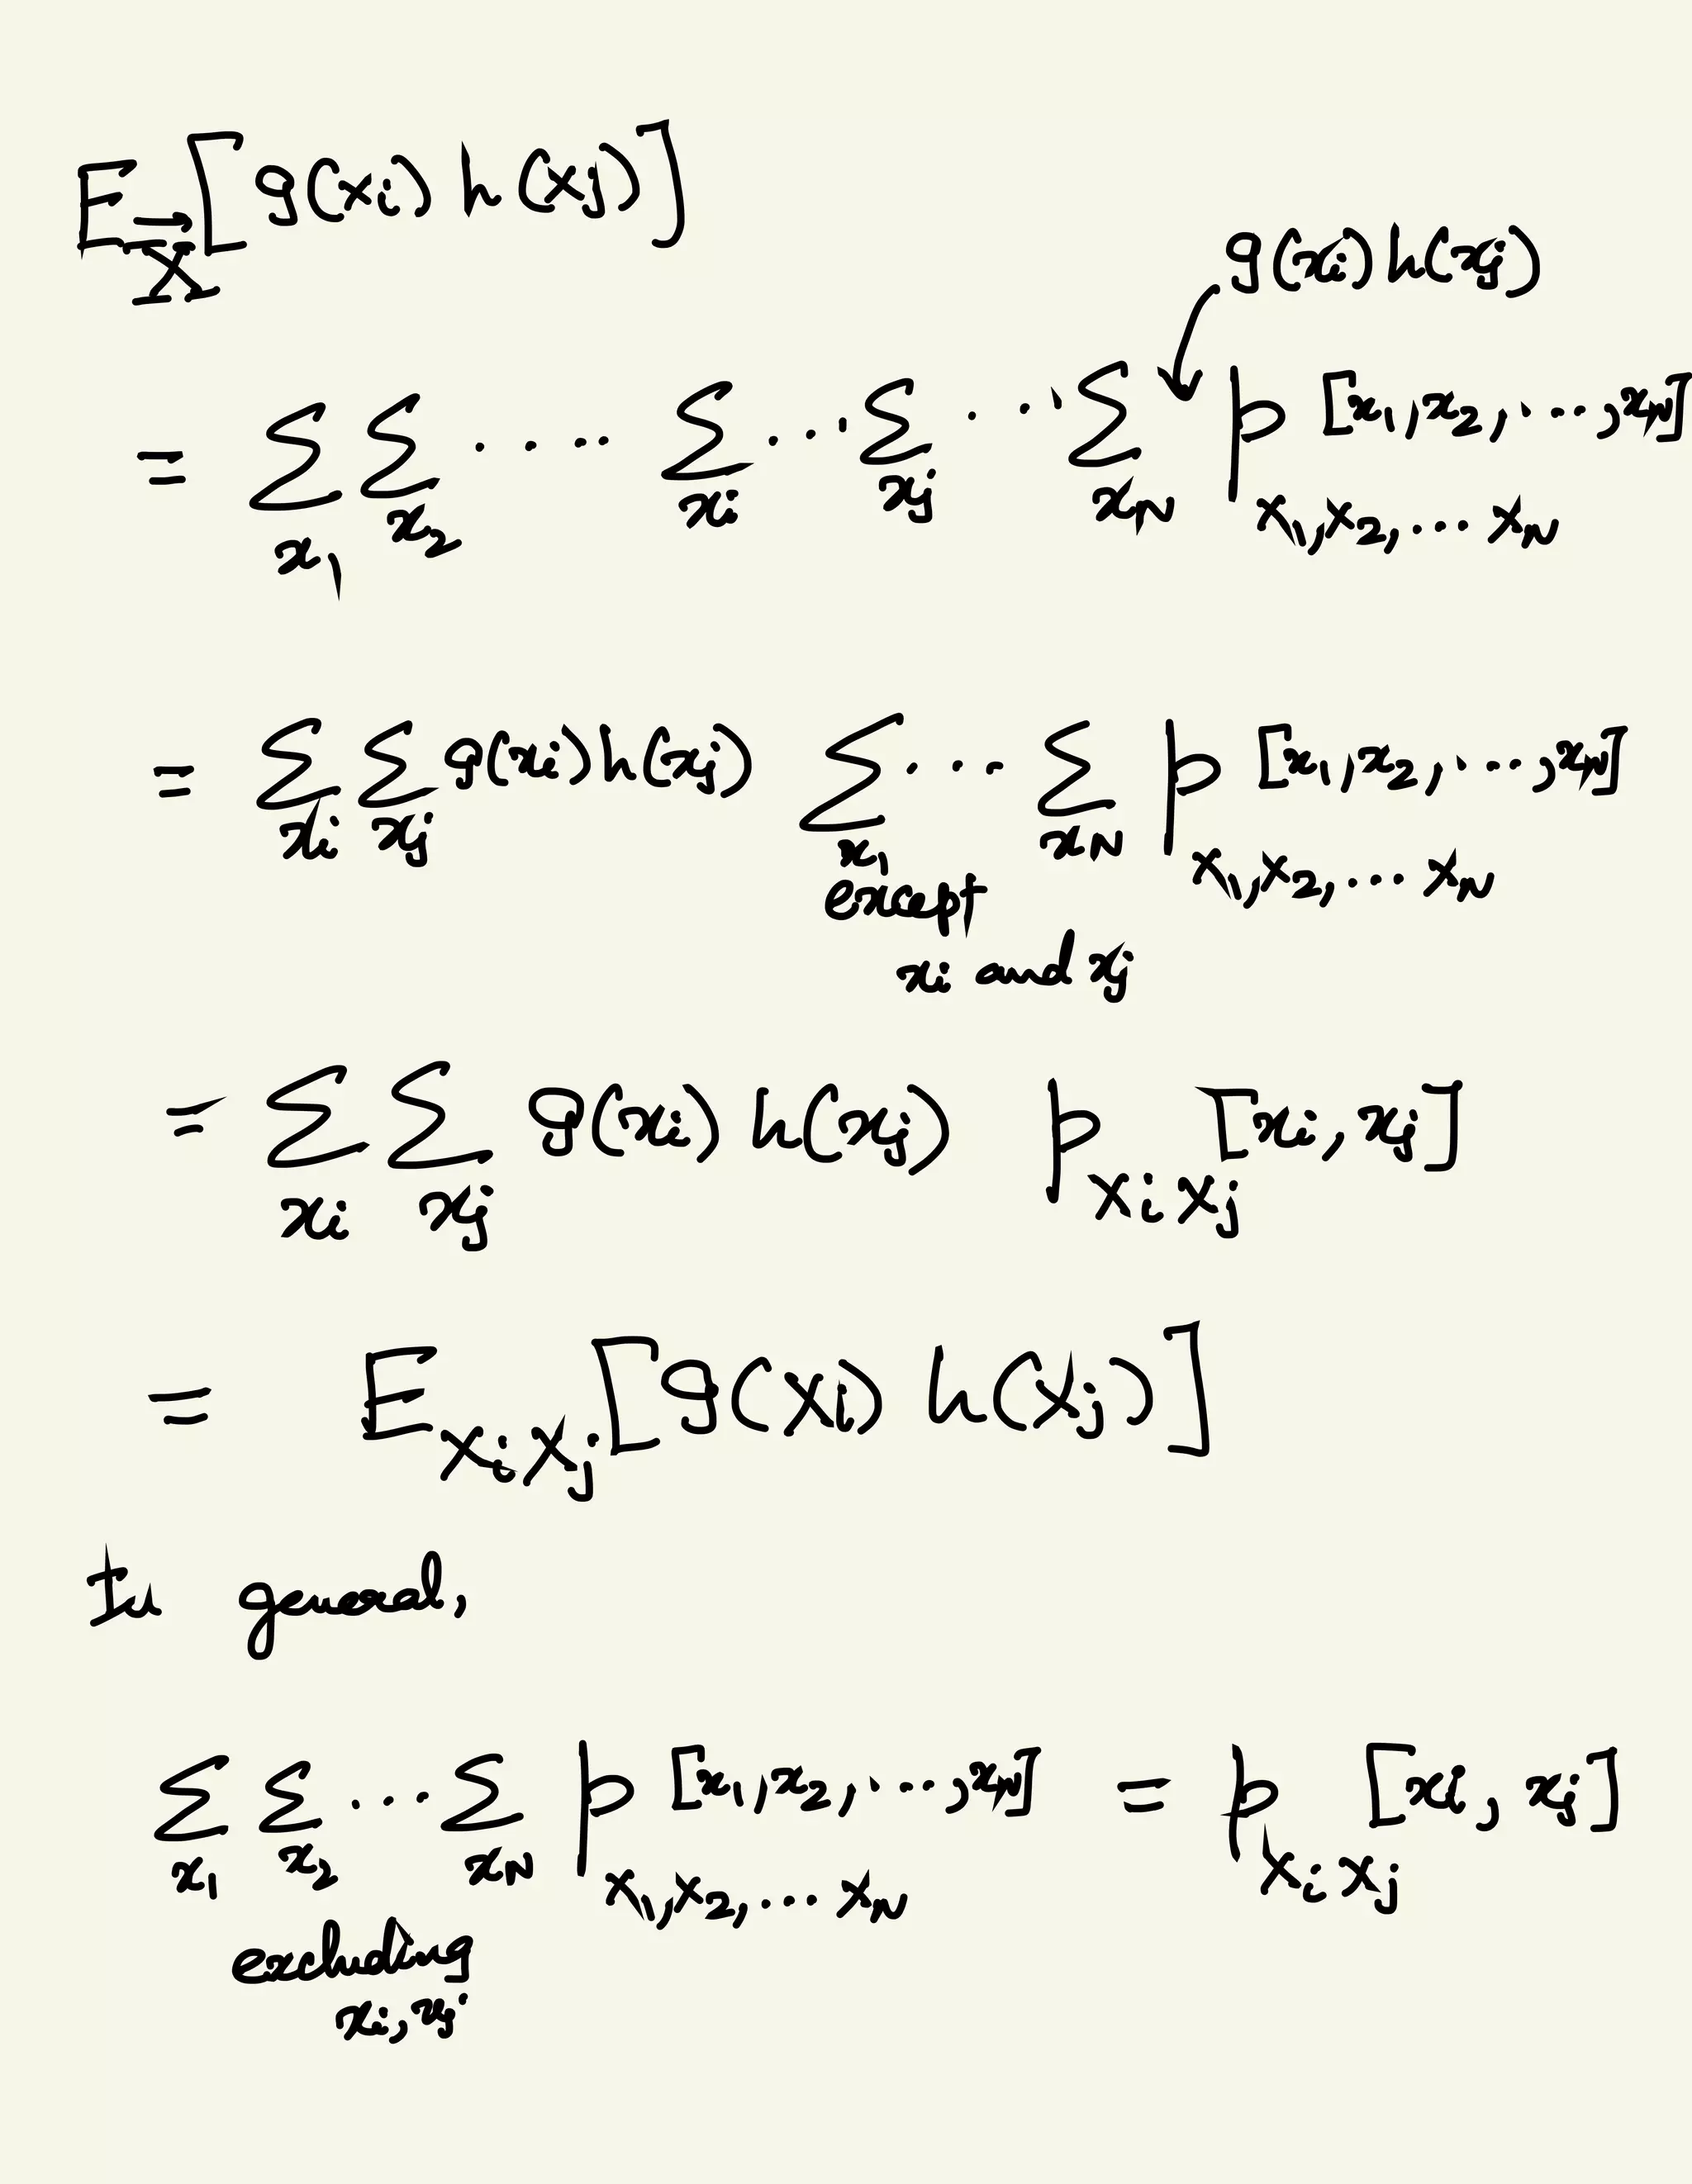 E_X⃗ [g(Xi) h(Xj)]
g(xi) h(xj)
= Σ_x1 Σ_x2 .... Σ_xi ... Σ_xj ... Σ_xN p_X1,X2,...XN [x1,x2,....,xN]
= Σ_xi Σ_xj g(xi) h(xj) Σ_x1 ... Σ_xN p_X1,X2,...XN [x1,x2,....,xN]
except
xi and xj
= Σ_xi Σ_xj g(xi) h(xj) p_XiXj [xi, xj]
= E_XiXj [g(Xi) h(Xj)]
In general,
Σ_x1 Σ_x2 ... Σ_xN p_X1,X2,...XN [x1,x2,....,xN] = p_XiXj [xi, xj]
excluding
xi, xj